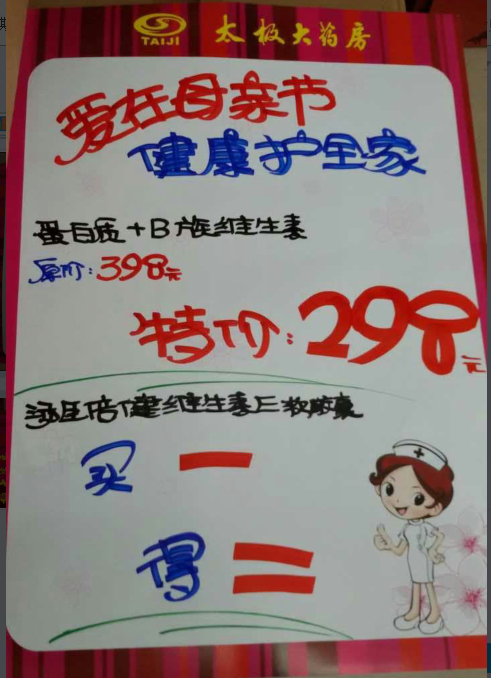 TAIJI 太极大药房
爱在母亲节
健康护全家
蛋白质+B族维生素
原价:398元
特价:298元
汤臣倍健维生素E软胶囊
买一
得二